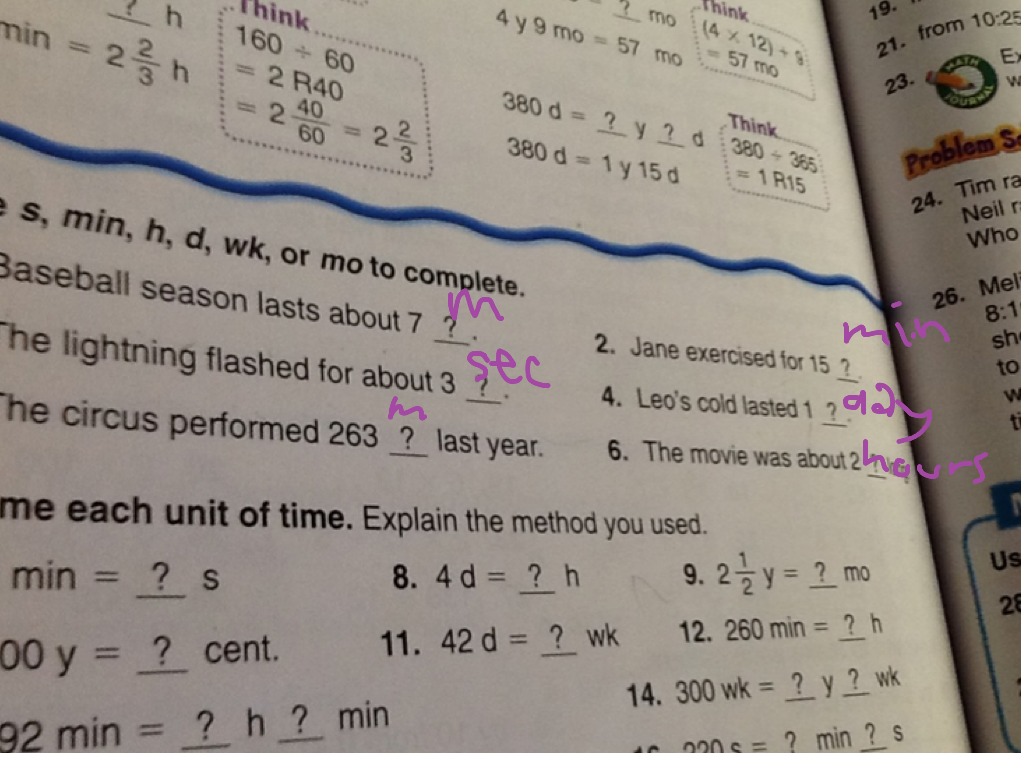 ? h
min = 2 2/3 h
Think
160 ÷ 60
= 2 R40
= 2 40/60 = 2 2/3
? mo
4 y 9 mo = 57 mo
Think
(4 × 12) + 9
= 57 mo
380 d = ? y ? d
380 d = 1 y 15 d
Think
380 ÷ 365
= 1 R15
s, min, h, d, wk, or mo to complete.
Baseball season lasts about 7 ?. m
2. Jane exercised for 15 ? min
The lightning flashed for about 3 ?. sec
4. Leo's cold lasted 1 ?. day
The circus performed 263 ? last year. m
6. The movie was about 2 ? hours
me each unit of time. Explain the method you used.
min = ? s
8. 4 d = ? h
9. 2 1/2 y = ? mo
00 y = ? cent.
11. 42 d = ? wk
12. 260 min = ? h
92 min = ? h ? min
14. 300 wk = ? y ? wk
220 s = ? min ? s
19.
21. from 10:25
23.
MATH JOURNAL
Ex
w
Problem So
24. Tim ra
Neil r
Who
26. Meli
8:1
sh
to
w
ti
Us
28